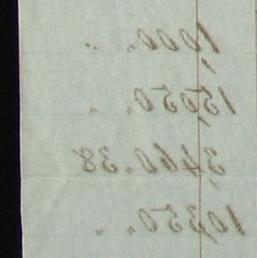 1,000. ..
15,050. .
3,460.38
10,350. ..